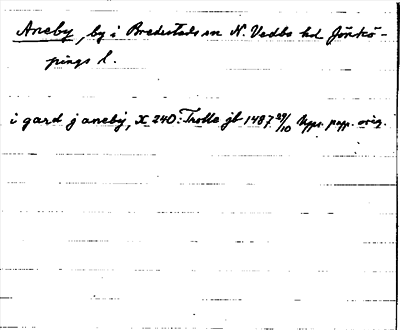 Aneby, by i Bredestads sn N. Vedbo hd Jönkö-
pings l.
i gard j anebÿ, X 240: Trolle jb 1487 29/10 Uppr. papp. orig.